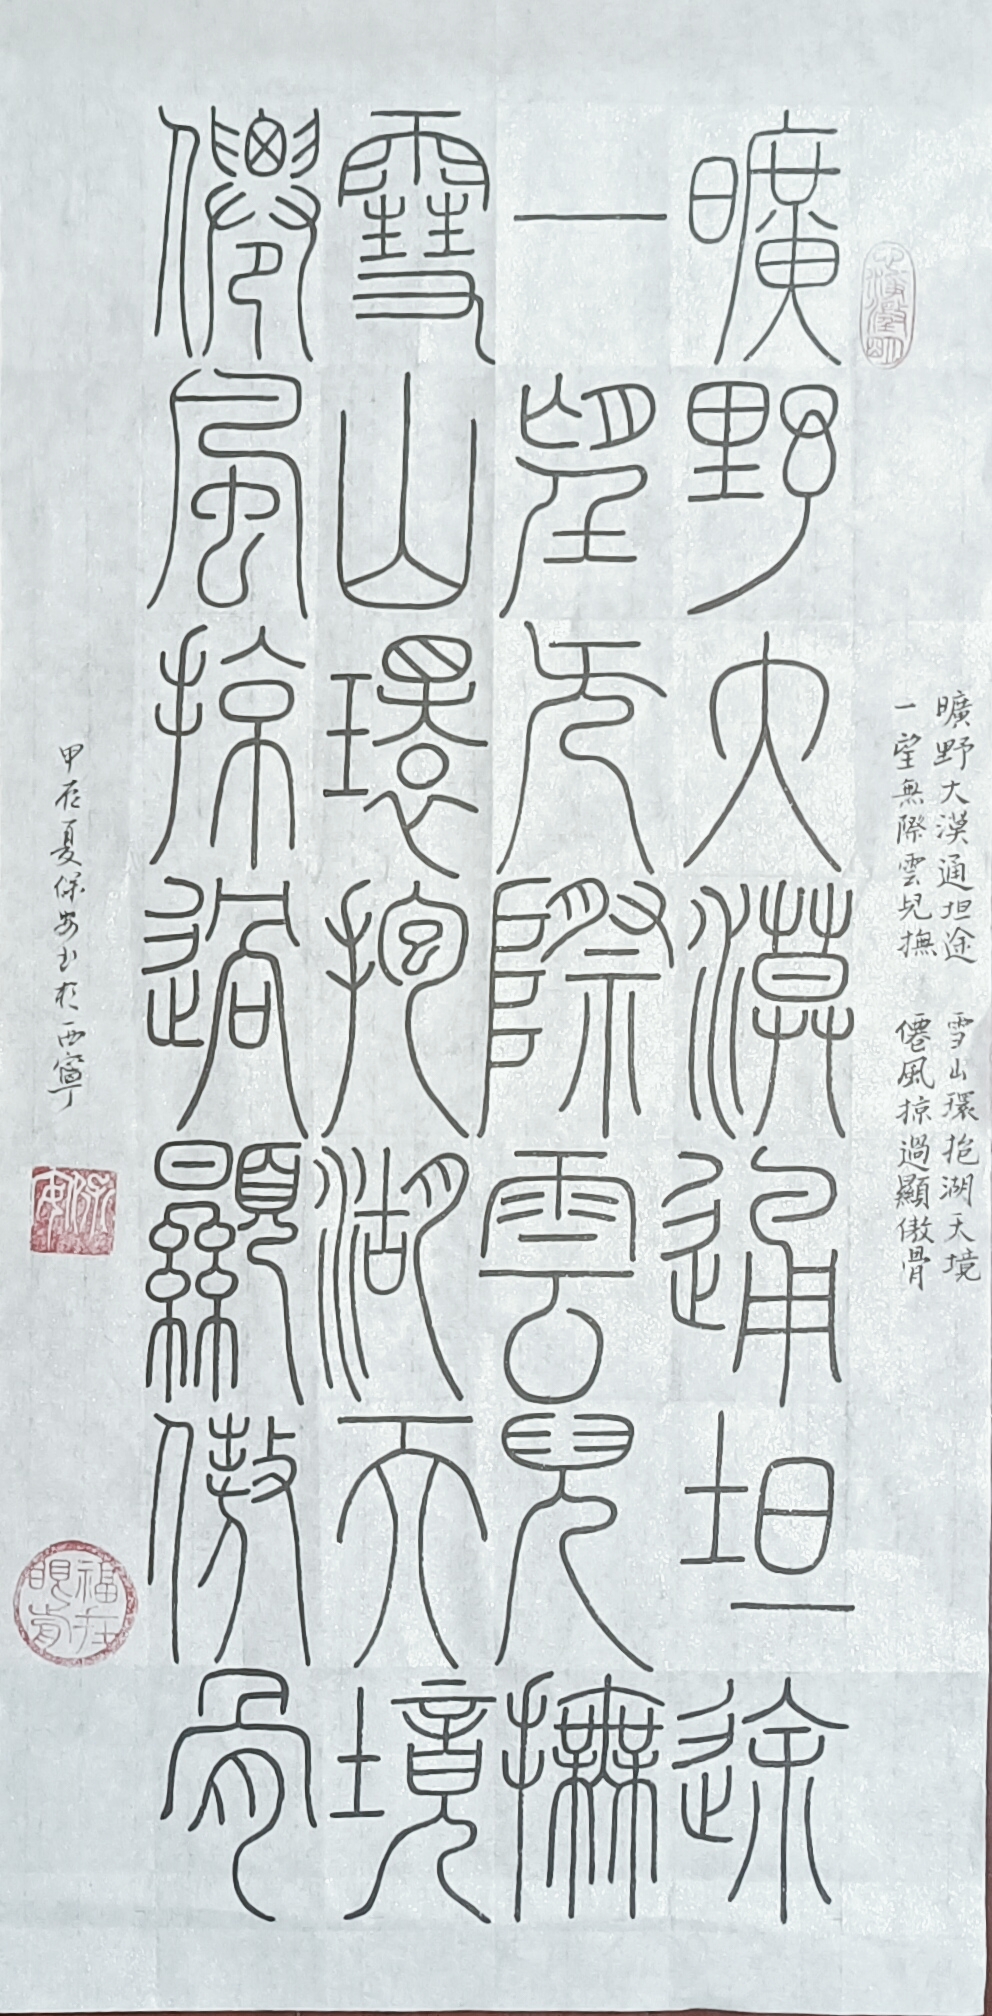 曠野大漠通坦途　雪山環抱湖天境
一望無際雲兒撫　僊風掠過顯傲骨
曠野大漠通坦途
一望无際雲兒撫
雪山環抱湖天境
僊風掠過顯傲骨
甲辰夏保安书於西寧
保安
福在眼前